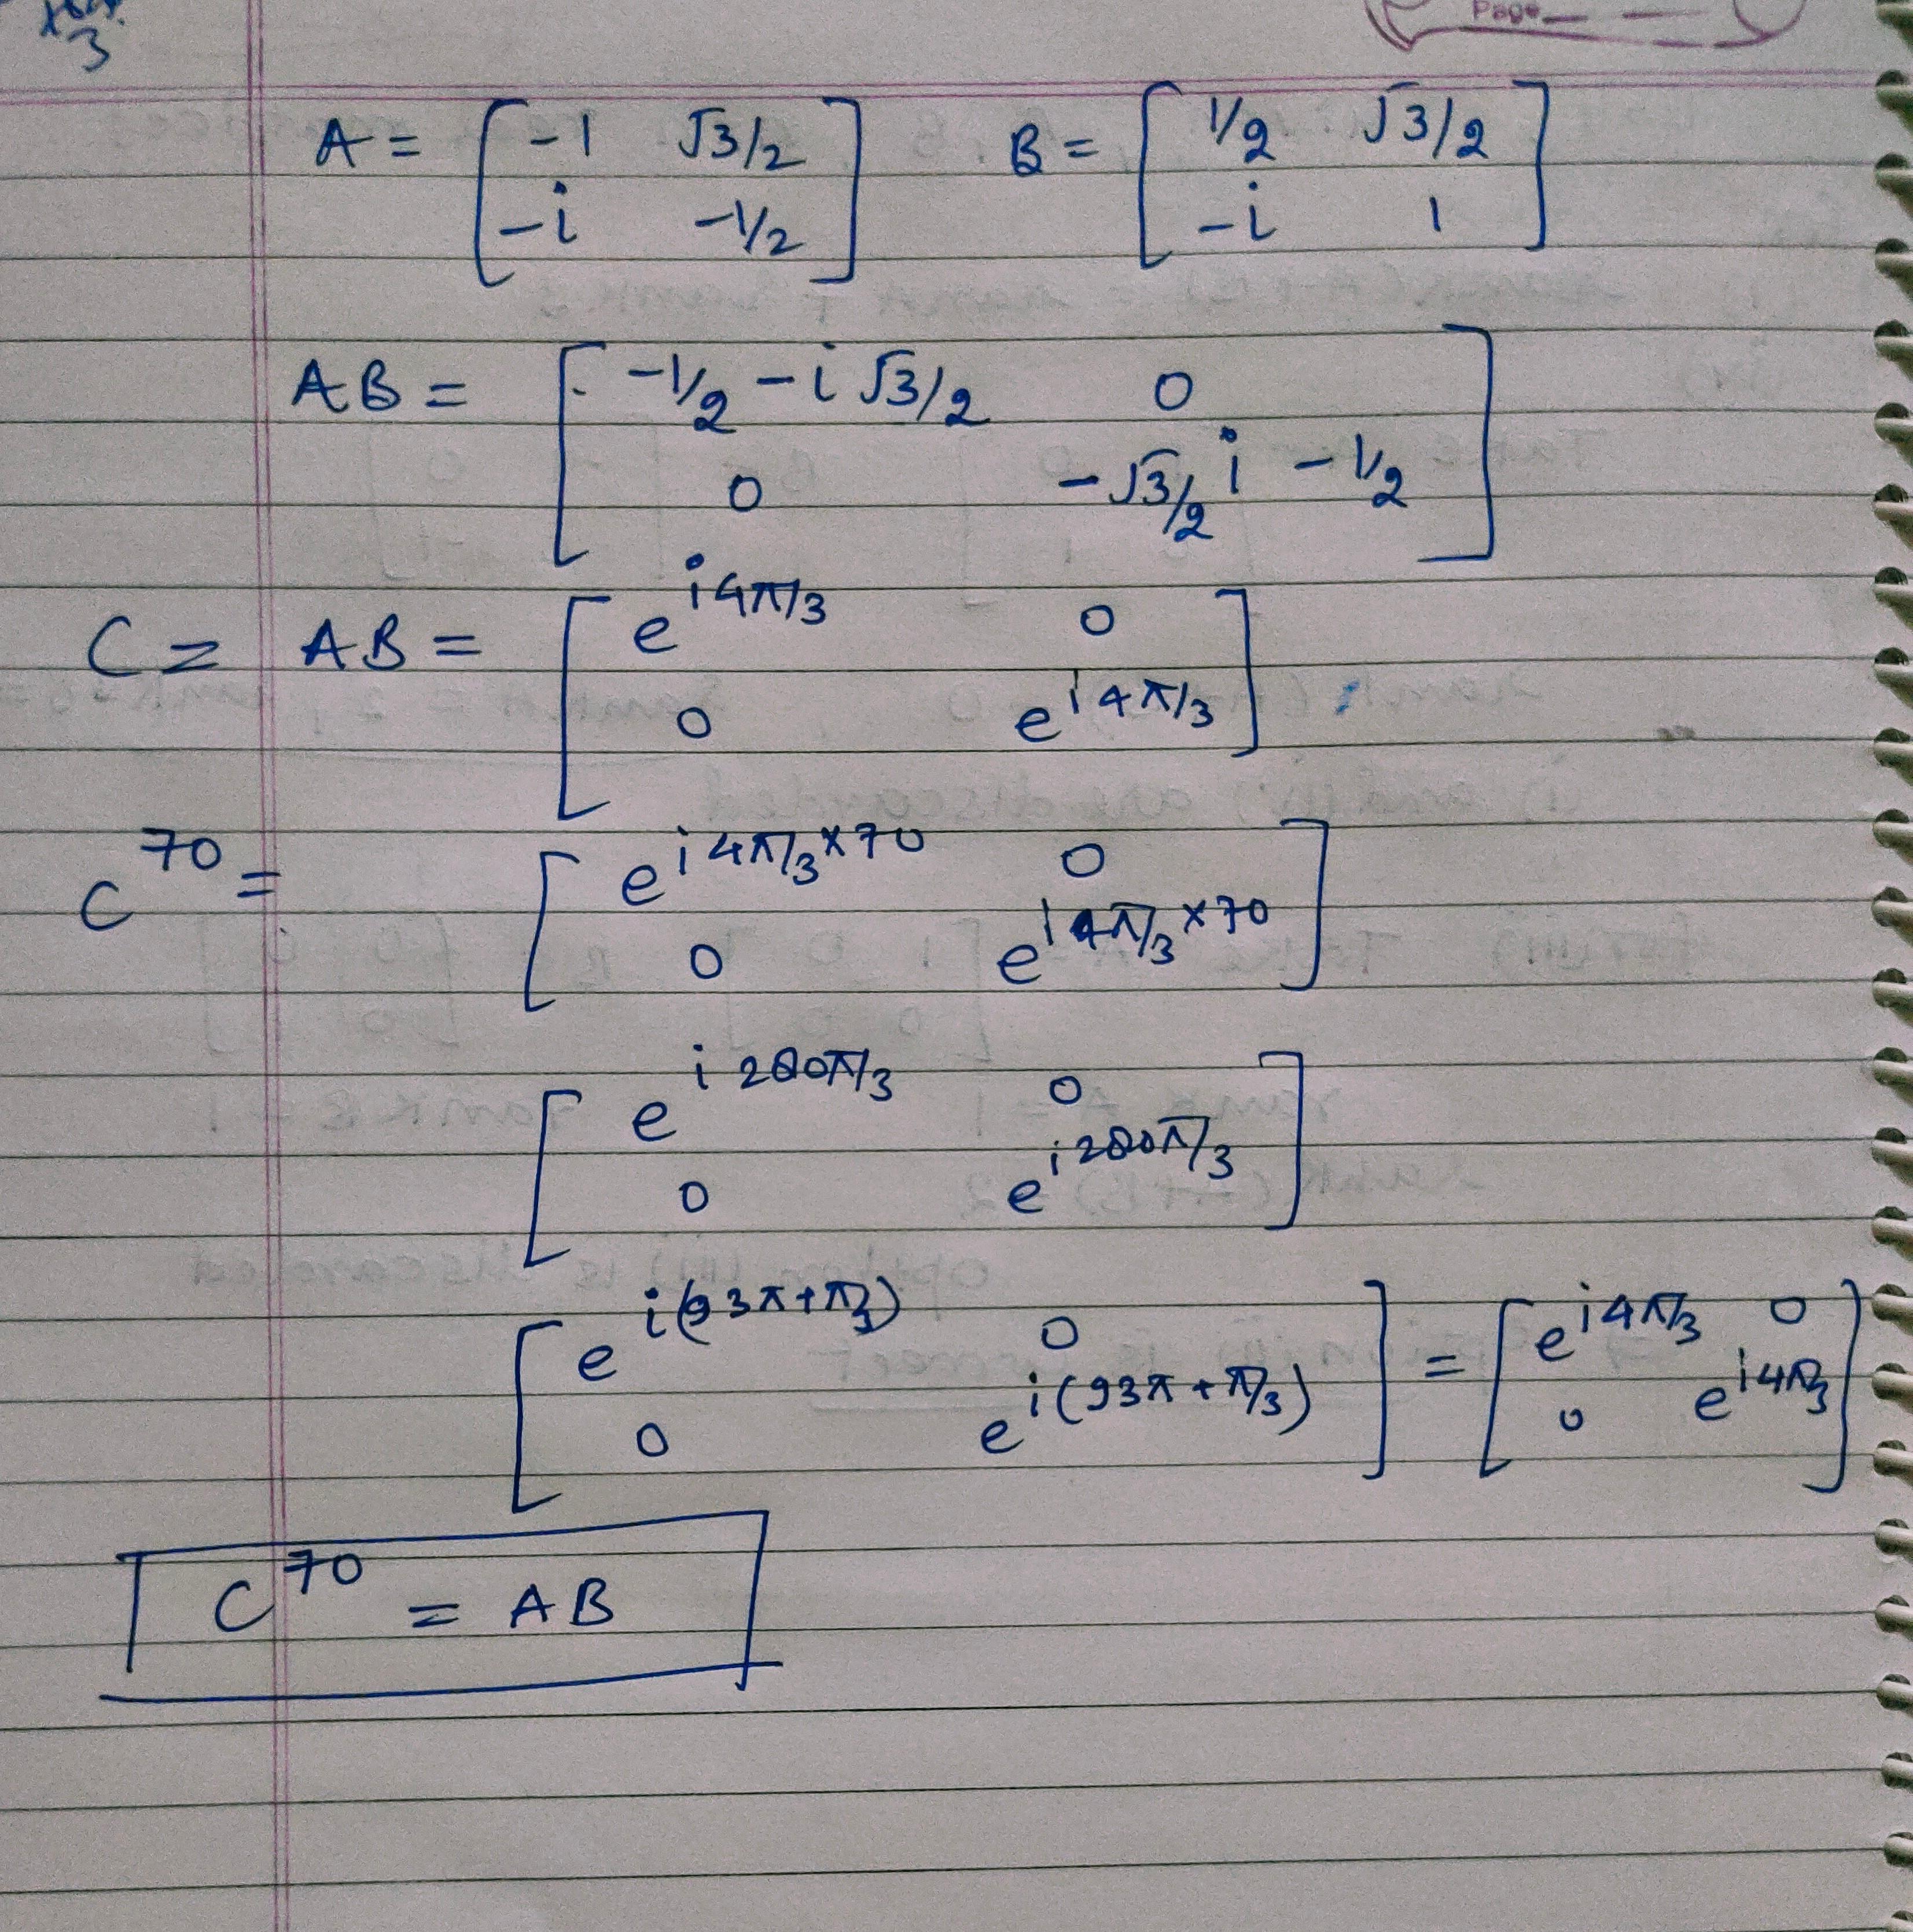 3
Page
A = [ -1 √3/2 ; -i -1/2 ] B = [ 1/2 √3/2 ; -i 1 ]
AB = [ -1/2 - i √3/2 0 ; 0 -√3/2 i - 1/2 ]
C = AB = [ e^{i4π/3} 0 ; 0 e^{i4π/3} ]
C^{70} = [ e^{i4π/3×70} 0 ; 0 e^{i4π/3×70} ]
[ e^{i280π/3} 0 ; 0 e^{i280π/3} ]
[ e^{i(93π+π/3)} 0 ; 0 e^{i(93π+π/3)} ] = [ e^{i4π/3} 0 ; 0 e^{i4π/3} ]
C^{70} = AB